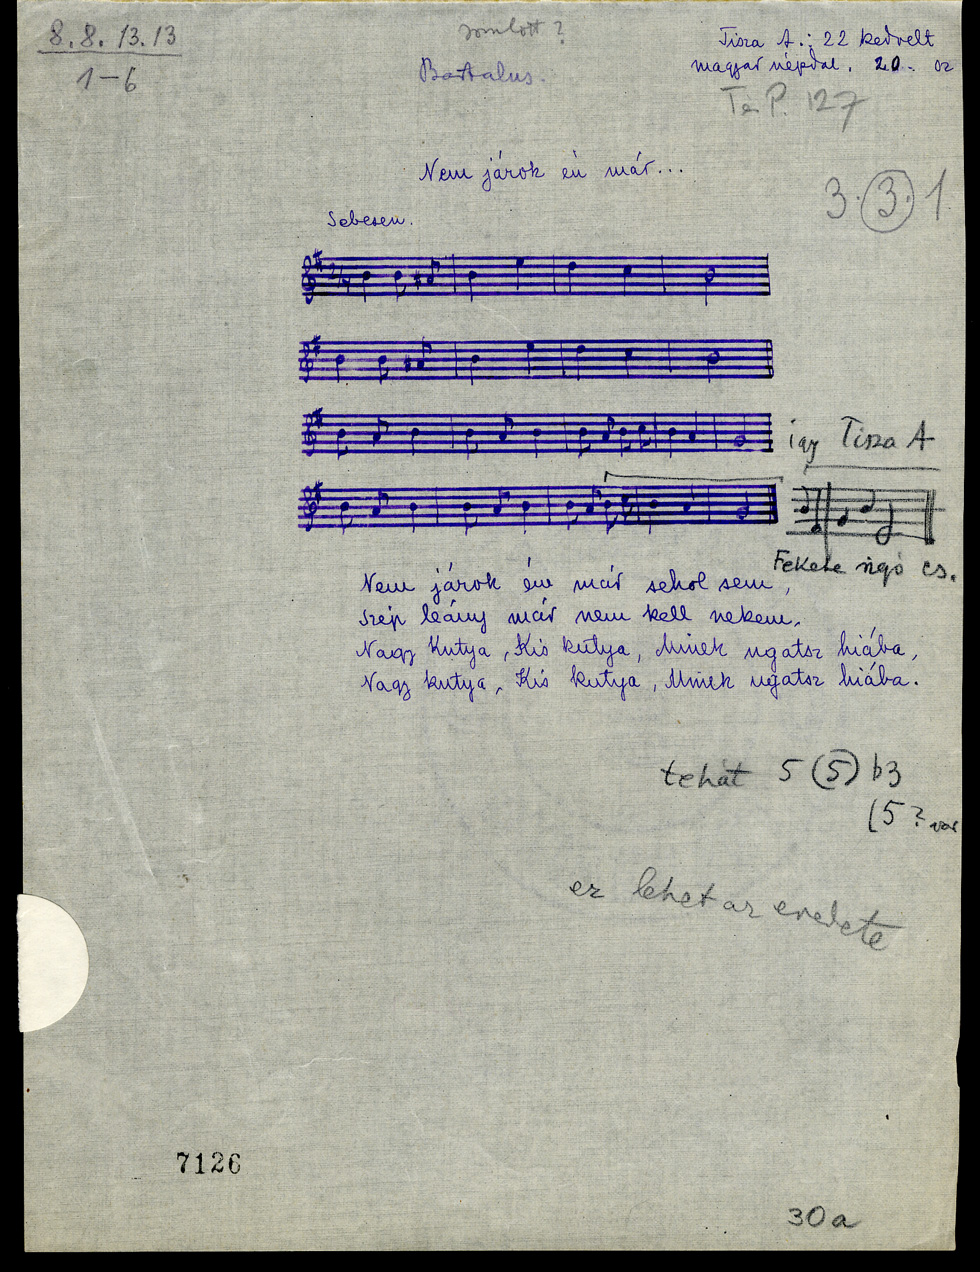 8. 8. 13. 13
1-6
romlott?
Bartalus.
Tisza A.: 22 kedvelt
magyar népdal. 20. oz
P. 127
Nem járok én már...
3. 3. 1
Sebesen.
így Tisza A
Fekete cs.
Nem járok én már sehol sem,
Szép leány már nem kell nekem.
Nagy kutya, Kis kutya, Minek ugatsz hiába,
Nagy kutya, Kis kutya, Minek ugatsz hiába.
tehát 5 (5) b3
(5 ?
ez lehet az eredete
7126
30a